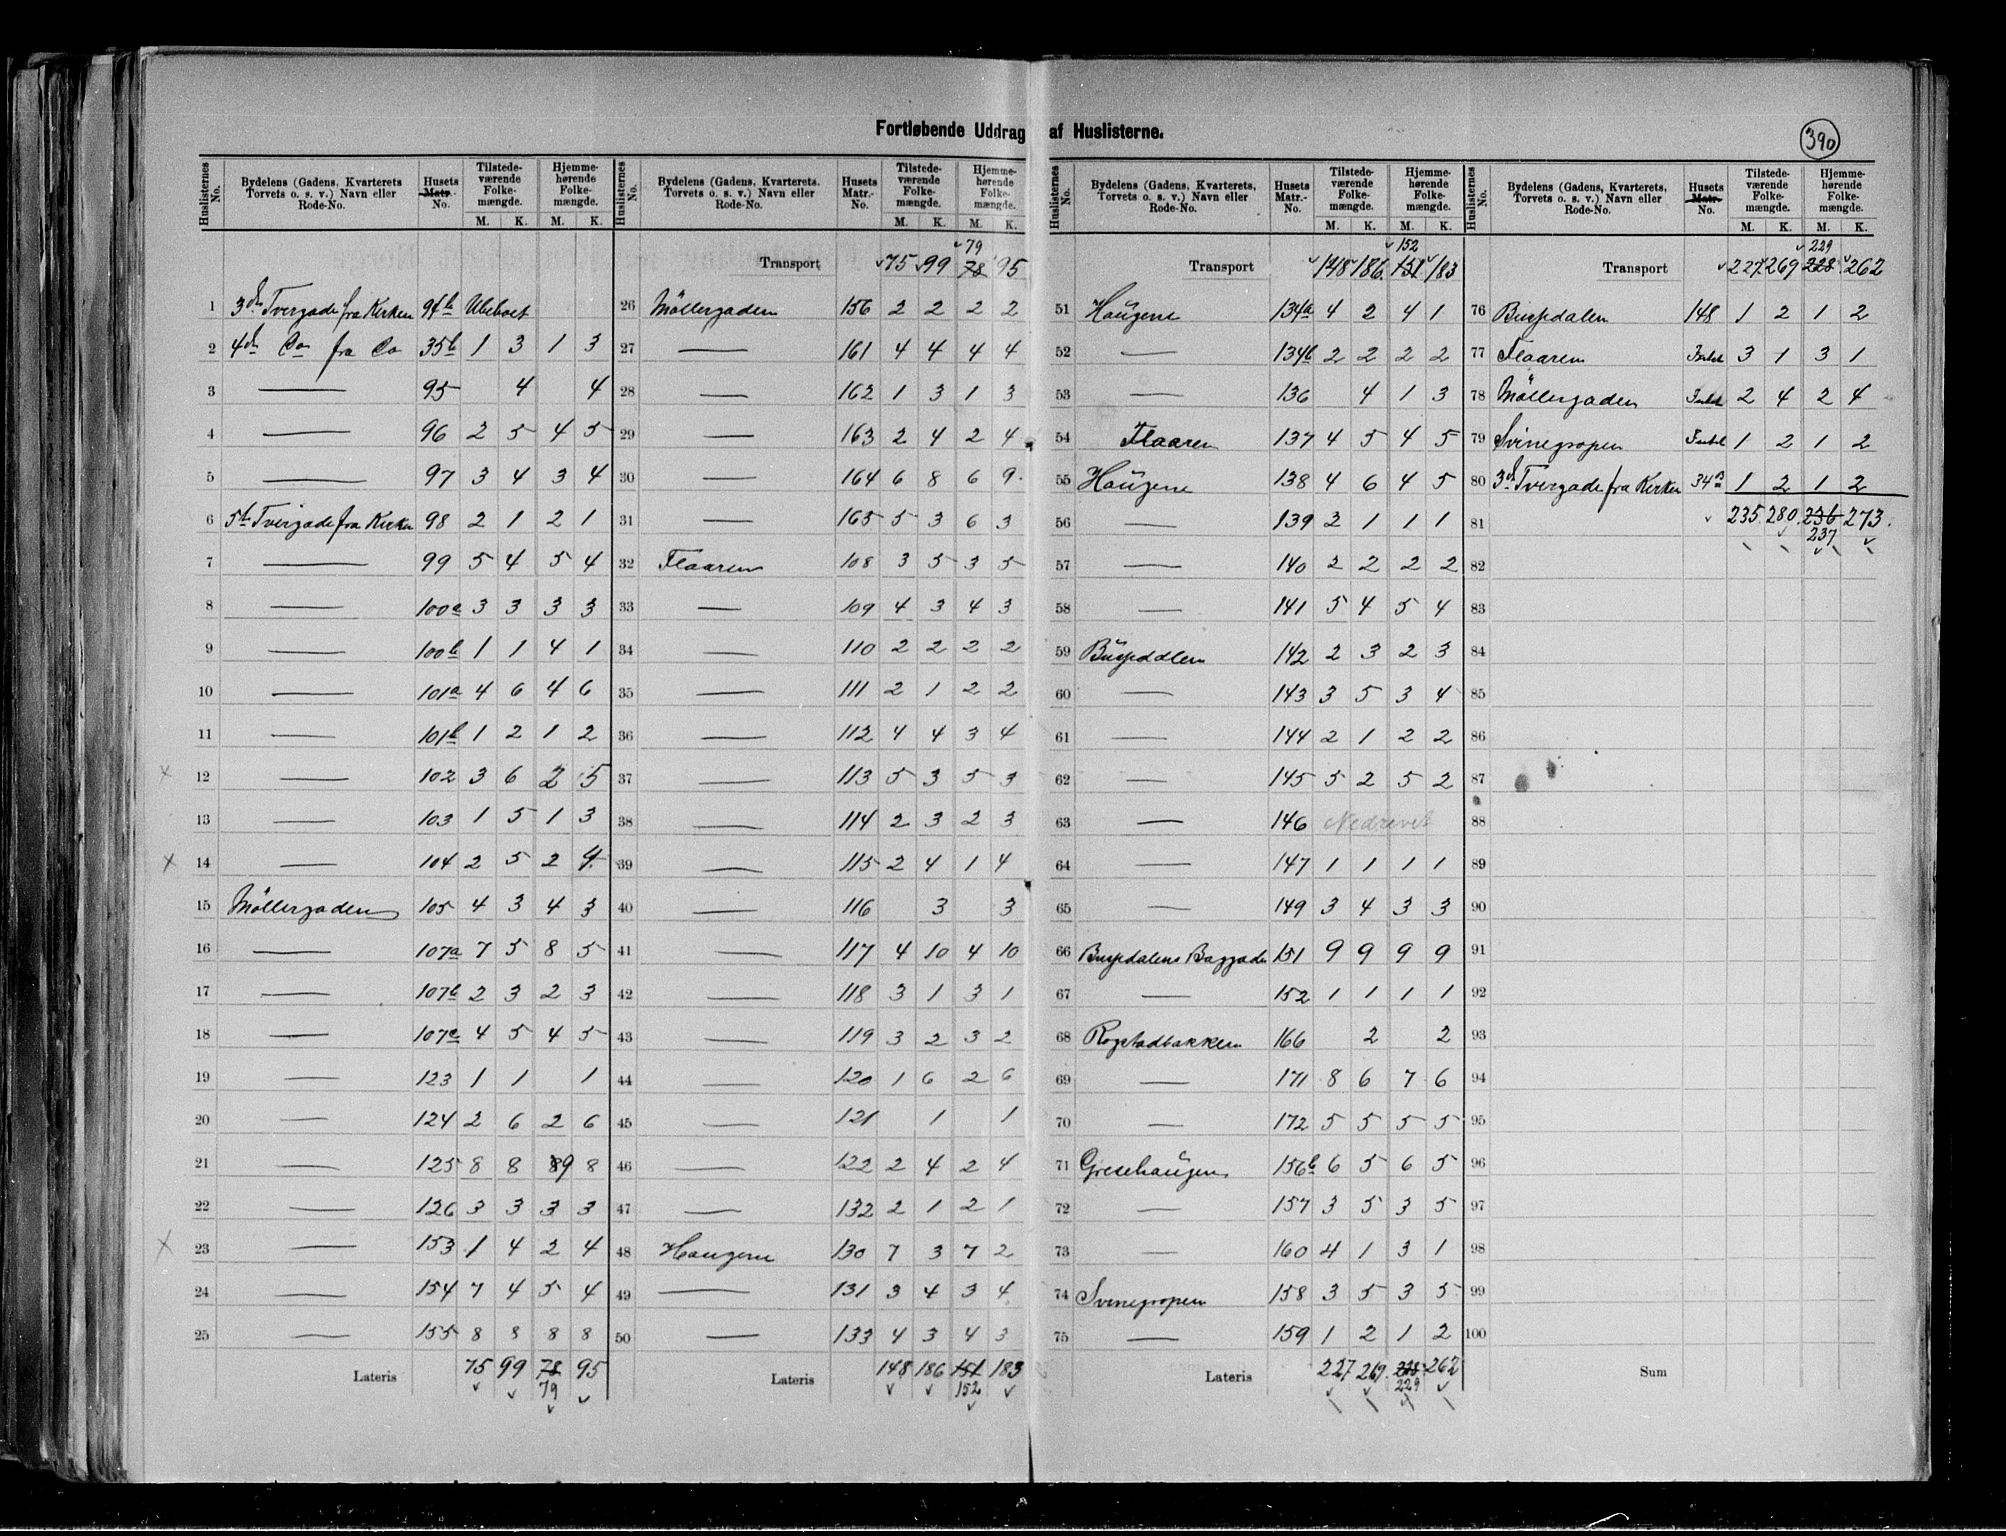 Fortløbende Uddrag af Huslisterne.
390
Huslisternes No. | Bydelens (Gadens, Kvarterets Torvets o. s. v.) Navn eller Rode-No. | Husets Matr.-No. | Tilstedeværende Folkemængde. M. K. | Hjemmehørende Folkemængde. M. K.
1 3die Tvergade fra Kirken 94b Ubeboet
2 4de Do fra Do 35b 1 3 1 3
3 — 95 4 4
4 — 96 2 5 4 5
5 — 97 3 4 3 4
6 5te Tvergade fra Kirken 98 2 1 2 1
7 — 99 5 4 5 4
8 — 100a 3 3 3 3
9 — 100b 1 1 4 1
10 — 101a 4 6 4 6
11 — 101b 1 2 1 2
12 — 102 3 6 2 5
13 — 103 1 5 1 3
14 — 104 2 5 2 4
15 Möllergaden 105 4 3 4 3
16 — 107a 7 5 8 5
17 — 107b 2 3 2 3
18 — 107c 4 5 4 5
19 — 123 1 1 1
20 — 124 2 6 2 6
21 — 125 8 8 9 8
22 — 126 3 3 3 3
23 — 153 1 4 2 4
24 — 154 7 4 5 4
25 — 155 8 8 8 8
Lateris 75 99 78 95
79
Huslisternes No. | Bydelens (Gadens, Kvarterets, Torvets o. s. v.) Navn eller Rode-No. | Husets Matr.-No. | Tilstedeværende Folkemængde. M. K. | Hjemmehørende Folkemængde. M. K.
79
Transport 75 99 78 95
26 Möllergaden 156 2 2 2 2
27 — 161 4 4 4 4
28 — 162 1 3 1 3
29 — 163 2 4 2 4
30 — 164 6 8 6 9
31 — 165 5 3 6 3
32 Flaaren 108 3 5 3 5
33 — 109 4 3 4 3
34 — 110 2 2 2 2
35 — 111 2 1 2 2
36 — 112 4 4 3 4
37 — 113 5 3 5 3
38 — 114 2 3 2 3
39 — 115 2 4 1 4
40 — 116 3 3
41 — 117 4 10 4 10
42 — 118 3 1 3 1
43 — 119 3 2 3 2
44 — 120 1 6 2 6
45 — 121 1 1
46 — 122 2 4 2 4
47 — 132 2 1 2 1
48 Haugene 130 7 3 7 2
49 — 131 3 4 3 4
50 — 133 4 3 4 3
Lateris 148 186 151 183
152
Huslisternes No. | Bydelens (Gadens, Kvarterets, Torvets o. s. v.) Navn eller Rode-No. | Husets Matr.-No. | Tilstedeværende Folkemængde. M. K. | Hjemmehørende Folkemængde. M. K.
152
Transport 148 186 151 183
51 Haugene 134a 4 2 4 1
52 — 134b 2 2 2 2
53 — 136 4 1 3
54 Flaaren 137 4 5 4 5
55 Haugene 138 4 6 4 5
56 — 139 2 1 1 1
57 — 140 2 2 2 2
58 — 141 5 4 5 4
59 Buspdalen 142 2 3 2 3
60 — 143 3 5 3 4
61 — 144 2 1 2 2
62 — 145 5 2 5 2
63 — 146 Nedrevet
64 — 147 1 1 1 1
65 — 149 3 4 3 3
66 Buspdalens Baggade 151 9 9 9 9
67 — 152 1 1 1 1
68 Rogstadbakken 166 2 2
69 — 171 8 6 7 6
70 — 172 5 5 5 5
71 Gresehaugen 156b 6 5 6 5
72 — 157 3 5 3 5
73 — 160 4 1 3 1
74 Svinegropen 158 3 5 3 5
75 — 159 1 2 1 2
Lateris 227 269 228 262
229
Huslisternes No. | Bydelens (Gadens, Kvarterets, Torvets o. s. v.) Navn eller Rode-No. | Husets Matr.-No. | Tilstedeværende Folkemængde. M. K. | Hjemmehørende Folkemængde. M. K.
229
Transport 227 269 228 262
76 Buspdalen 148 1 2 1 2
77 Flaaren 3 1 3 1
78 Möllergaden 2 4 2 4
79 Svinegropen 1 2 1 2
80 3die Tvergade fra Kirken 34 1 2 1 2
81 235 280 236 273
237
82
83
84
85
86
87
88
89
90
91
92
93
94
95
96
97
98
99
100
Sum